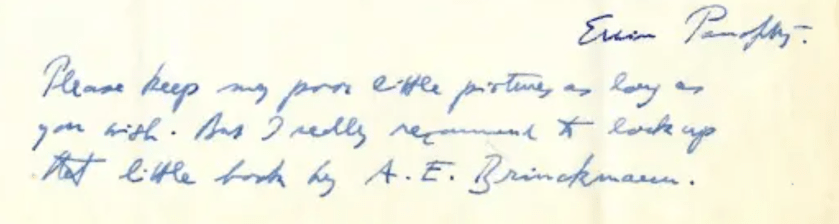 Erwin Panofsky.
Please keep my poor little pictures as long as
you wish. But I really recommend to look up
that little book by A. E. Brinckmann.